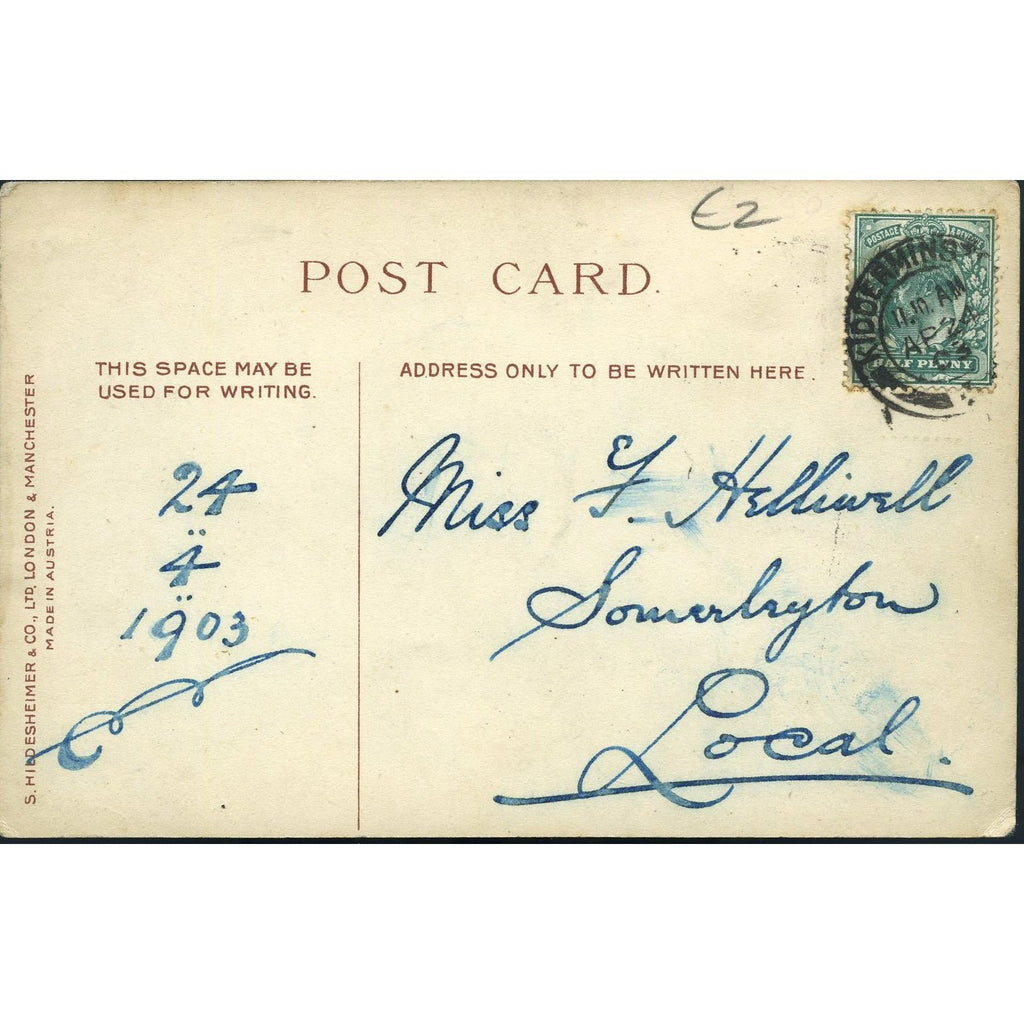 £2
POST CARD.
POSTAGE & REVENUE
KIDDERMINST
AP 24
03
HALF PENNY
THIS SPACE MAY BE
USED FOR WRITING.
ADDRESS ONLY TO BE WRITTEN HERE.
S. HILDESHEIMER & CO., LTD, LONDON & MANCHESTER
MADE IN AUSTRIA.
24
4
1903
Miss F. Helliwell
Somerleyton
Local.